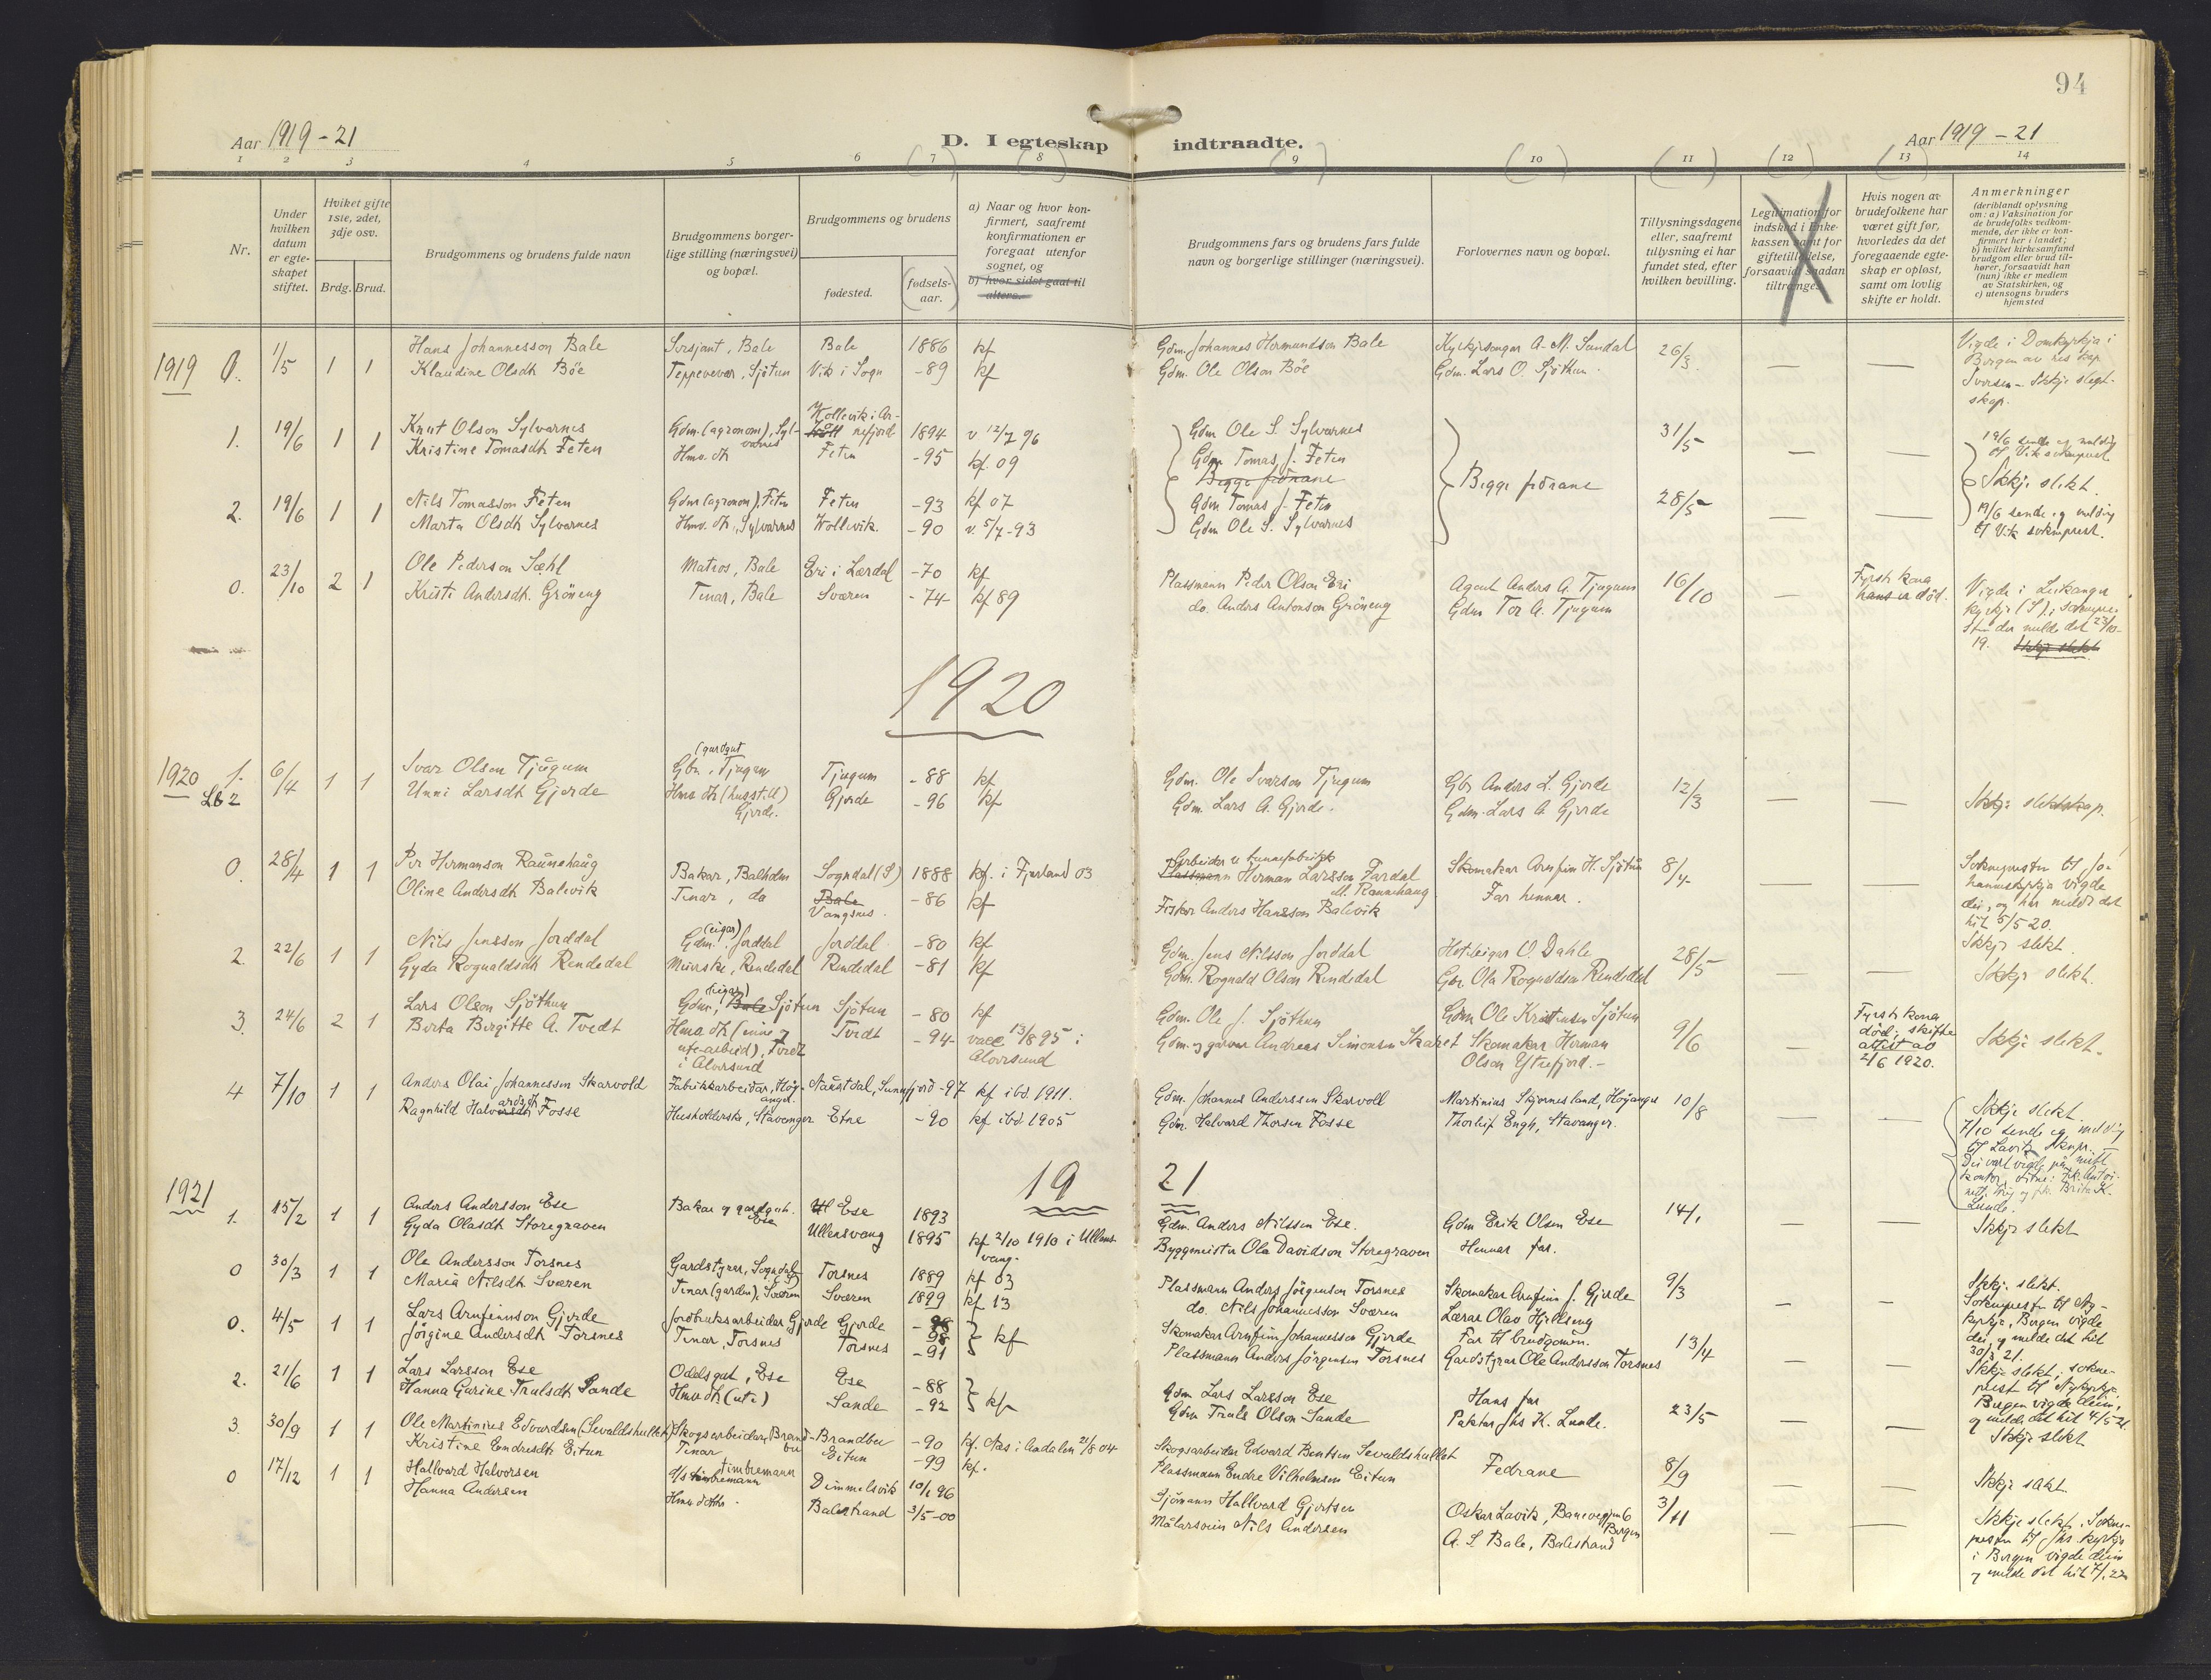 94
Aar 1919-21
D. I egteskap indtraadte.
Aar 1919-21
1 2 3 4 5 6 (7) (8) (9) (10) (11) (12) (13) 14
Nr.
Under hvilken datum er egteskapet stiftet.
Hviket gifte 1ste, 2det, 3dje osv.
Brdg. Brud.
Brudgommens og brudens fulde navn
Brudgommens borgerlige stilling (næringsvei) og bopæl.
Brudgommens og brudens
fødested.
(fødselsaar.)
a) Naar og hvor konfirmert, saafremt konfirmationen er foregaat utenfor sognet, og
b) hvor sidst gaat til alters.
Brudgommens fars og brudens fars fulde navn og borgerlige stillinger (næringsvei).
Forlovernes navn og bopæl.
Tillysningsdagene eller, saafremt tillysning ei har fundet sted, efter hvilken bevilling.
Legitimation for indskud i Enkekassen samt for giftetilladelse, forsaavidt saadan tiltrænges.
Hvis nogen av brudefolkene har været gift før, hvorledes da det foregaaende egteskap er opløst, samt om lovlig skifte er holdt.
Anmerkninger (deriblandt oplysning om: a) Vaksination for de brudefolks vedkommende, der ikke er konfirmert her i landet; b) hvilket kirkesamfund brudgom eller brud tilhører, forsaavidt han (hun) ikke er medlem av Statskirken, og c) utensogns bruders hjemsted
1919 0. 1/5 1 1 Hans Johannesson Bale Sersjant, Bale Bale 1886 kf Gdm. Johannes Hermundson Bale Kyrkjesongar A. M. Sundal 26/3 — —
Klaudine Olsdt Böe Teppevever, Sjötun Vik i Sogn -89 kf Gdm. Ole Olson Böe Gdm. Lars O. Sjöthun.
Vigde i Domkyrkja i
Bergen av res kap
Iversen - Ikkje slegt-
skap.
1. 19/6 1 1 Knut Olson Sylvarnes Gdm. (agronom), Sylvarnes Wollevik i Arnefjord 1894 v 12/7 96 Gdm Ole S. Sylvarnes 31/5 — —
Kristine Tomasdt Feten Hmv. dt Feten -95 kf. 09 Gdm Tomas J. Feten
Begge fedrane
Begge fedrane
19/6 sende eg melding
til Vik sokneprest
Ikkje slekt.
2. 19/6 1 1 Nils Tomasson Feten Gdm (agronom), Feten Feten -93 kf 07 Gdm Tomas J. Feten 28/5 — —
Marta Olsdt Sylvarnes Hmv. dt, Sylvarnes Wollevik -90 v. 5/7-93 Gdm Ole S. Sylvarnes
19/6 sende eg melding
til Vik sokneprest.
0. 23/10 2 1 Ole Pederson Sæhl Matros, Bale Eri i Lærdal -70 kf Plassmann Peder Olson Eri Agent Anders A. Tjugum 16/10 — Fyrste kona hans er död.
Kristi Andersdt. Gröneng Tenar, Bale Sværen -74 kf 89 do. Anders Antonson Gröneng Gdm Tor A. Tjugum
Vigde i Leikanger
kyrkje (S),
der melde det 23/10-
19. Ikkje slekt
1920
1920 1. 6/4 1 1 Ivar Olson Tjugum Gbr. (gardgut) Tjugum Tjugum -88 kf Gdm. Ole Ivarson Tjugum Gbr Anders L. Gjerde 12/3 — — Ikkje slektskap.
Unni Larsdt Gjerde Hmv dt (husstell) Gjerde. Gjerde -96 kf Gdm. Lars A. Gjerde. Gdm. Lars A. Gjerde
0. 28/4 1 1 Per Hermanson Raunehaug Bakar, Balholm Sogndal (S) 1888 kf. i Fjærland 03 Plassmann Arbeider v tunnefabrikk Herman Larsson Fardal Skomakar Arnfinn H. Sjötun 8/4 — —
Oline Andersdt Balevik Tenar, do Bale Vangsnes. -86 kf Fisker Anders Hansson Balevik Far hennar.
Soknepresten til Jo-
hanneskyrkja vigde
dei, og har meldt det
hit 5/5 20.
Ikkje slekt.
2. 22/6 1 1 Nils Jensson Jorddal Gdm. (eigar) Jorddal Jorddal -80 kf Gdm. Jens Nilsson Jorddal Hoteleigar O. Dahle 28/5 — — Ikkje slekt.
Gyda Rognaldsdt Rendedal Rendedal Rendedal -81 kf Gdm. Rognald Olson Rendedal Gbr. Ola Rognaldson Rendedal
3. 24/6 2 1 Lars Olson Sjöthun Gdm, (eigar) Bale Sjötun Sjötun -80 kf Gdm. Ole J. Sjöthun Gdm Ole Kristensen Sjötun 9/6 —
Berta Birgitte A. Tvedt Hmv dt (inne og ute-arbeid), Tvedt i Alversund Tvedt -94 vacc 13/8 95 i Alversund Gdm. og garvar Andreas Simonsen Skomakar Herman Olson Ytrefjord.-
Fyrste kona
död; skifte
attist av
2/6 1920.
Ikkje slekt.
4 7/10 1 1 Anders Olai Johannessen Skarvold Fabrikkarbeidar, Höyanger Naustdal, Sunnfjord -97 kf ibd. 1911. Gdm. Johannes Anderssen Skarvoll Martinius Skjernesland, Höyanger 10/8 — —
Ragnhild Halvardsdt Fosse Husholderske, Stavanger Etne -90 kf ibd. 1905 Gdm. Halvard Thorsen Fosse Thorleif Engh, Stavanger.
Ikkje slekt.
7/10 sende eg melding
til Lavik
Lunde.
19 21
1921 1. 15/2 1 1 Anders Andersson Ese Bakar og gardgut. Ese Ese 1893 Gdm. Anders Nilssen Ese. Gdm Erik Olsen Ese 14/1 — — Ikkje slekt
Gyda Olasdt Storegraven Ullensvang 1895 kf 2/10 1910 i Ullensvang. Byggmeister Ola Davidson Storegraven Hennar far.
0 30/3 1 1 Ole Andersson Torsnes Gardstyrar, Sogndal (S) Torsnes 1889 kf 03 Plassmann Anders Jörgenson Torsnes Skomakar Arnfinn J. Gjerde 9/3 — —
Maria Nilsdt Sværen Tenar (garden), Sværen Sværen 1899 kf 13 do. Nils Johannesson Sværen Lærar Olav Hjellseng
Ikkje slekt.
Soknepresten til Ny-
kyrkje, Bergen vigde
dei, og melde det hit
30/3 21.
0. 4/5 1 1 Lars Arnfinnson Gjerde Jordbruksarbeidar Gjerde Gjerde -98 kf Skomakar Arnfinn Johannesson Gjerde Far til brudgomen. 13/4 — —
Jörgine Andersdt Torsnes Tenar, Torsnes Torsnes -91 Plassmann Anders Jörgensen Torsnes Gardstyrar Ole Andersson Torsnes
Ikkje slekt; sokne-
prest til Nykyrkje,
Bergen vigde deim,
og melde det hit 4/5-21.
2. 21/6 1 1 Lars Larsson Ese Odelsgut, Ese Ese -88 kf Gdm Lars Larsson Ese Hans far 23/5 — — Ikkje slekt
Hanna Gurine Trulsdt Sande Hmv dt (ute) Sande -92 Gdm Truls Olson Sande Paktar Jhs K. Lunde.
3. 30/9 1 1 Ole Martinius Edvardsen (Sevaldshullet) Skogsarbeidar, Brandbu Brandbu -90 kf. Nes i Aadalen 21/8 04 Skogsarbeidar Edvard Bentsen Sevaldshullet Fedrane 8/9 — — Ikkje slekt.
Kristine Endresdt Eitun Tenar Eitun -99 kf. Plassmann Endre Vilhelmsen Eitun
0 17/12 1 1 Hallvard Halvorsen timbremann Dimmelsvik 10/1 96 Sjömann Hallvard Gjertsen Oskar Lavik, Bergen 3/11 — —
Hanna Andersen Hmv dotter. Balestrand 3/5-00 Målarsvein Nils Andersen A. S. Bale, Balestrand
Ikkje slekt. Sokne-
presten til Jhs kyrkja
i Bergen vigde deim
og melde det hit